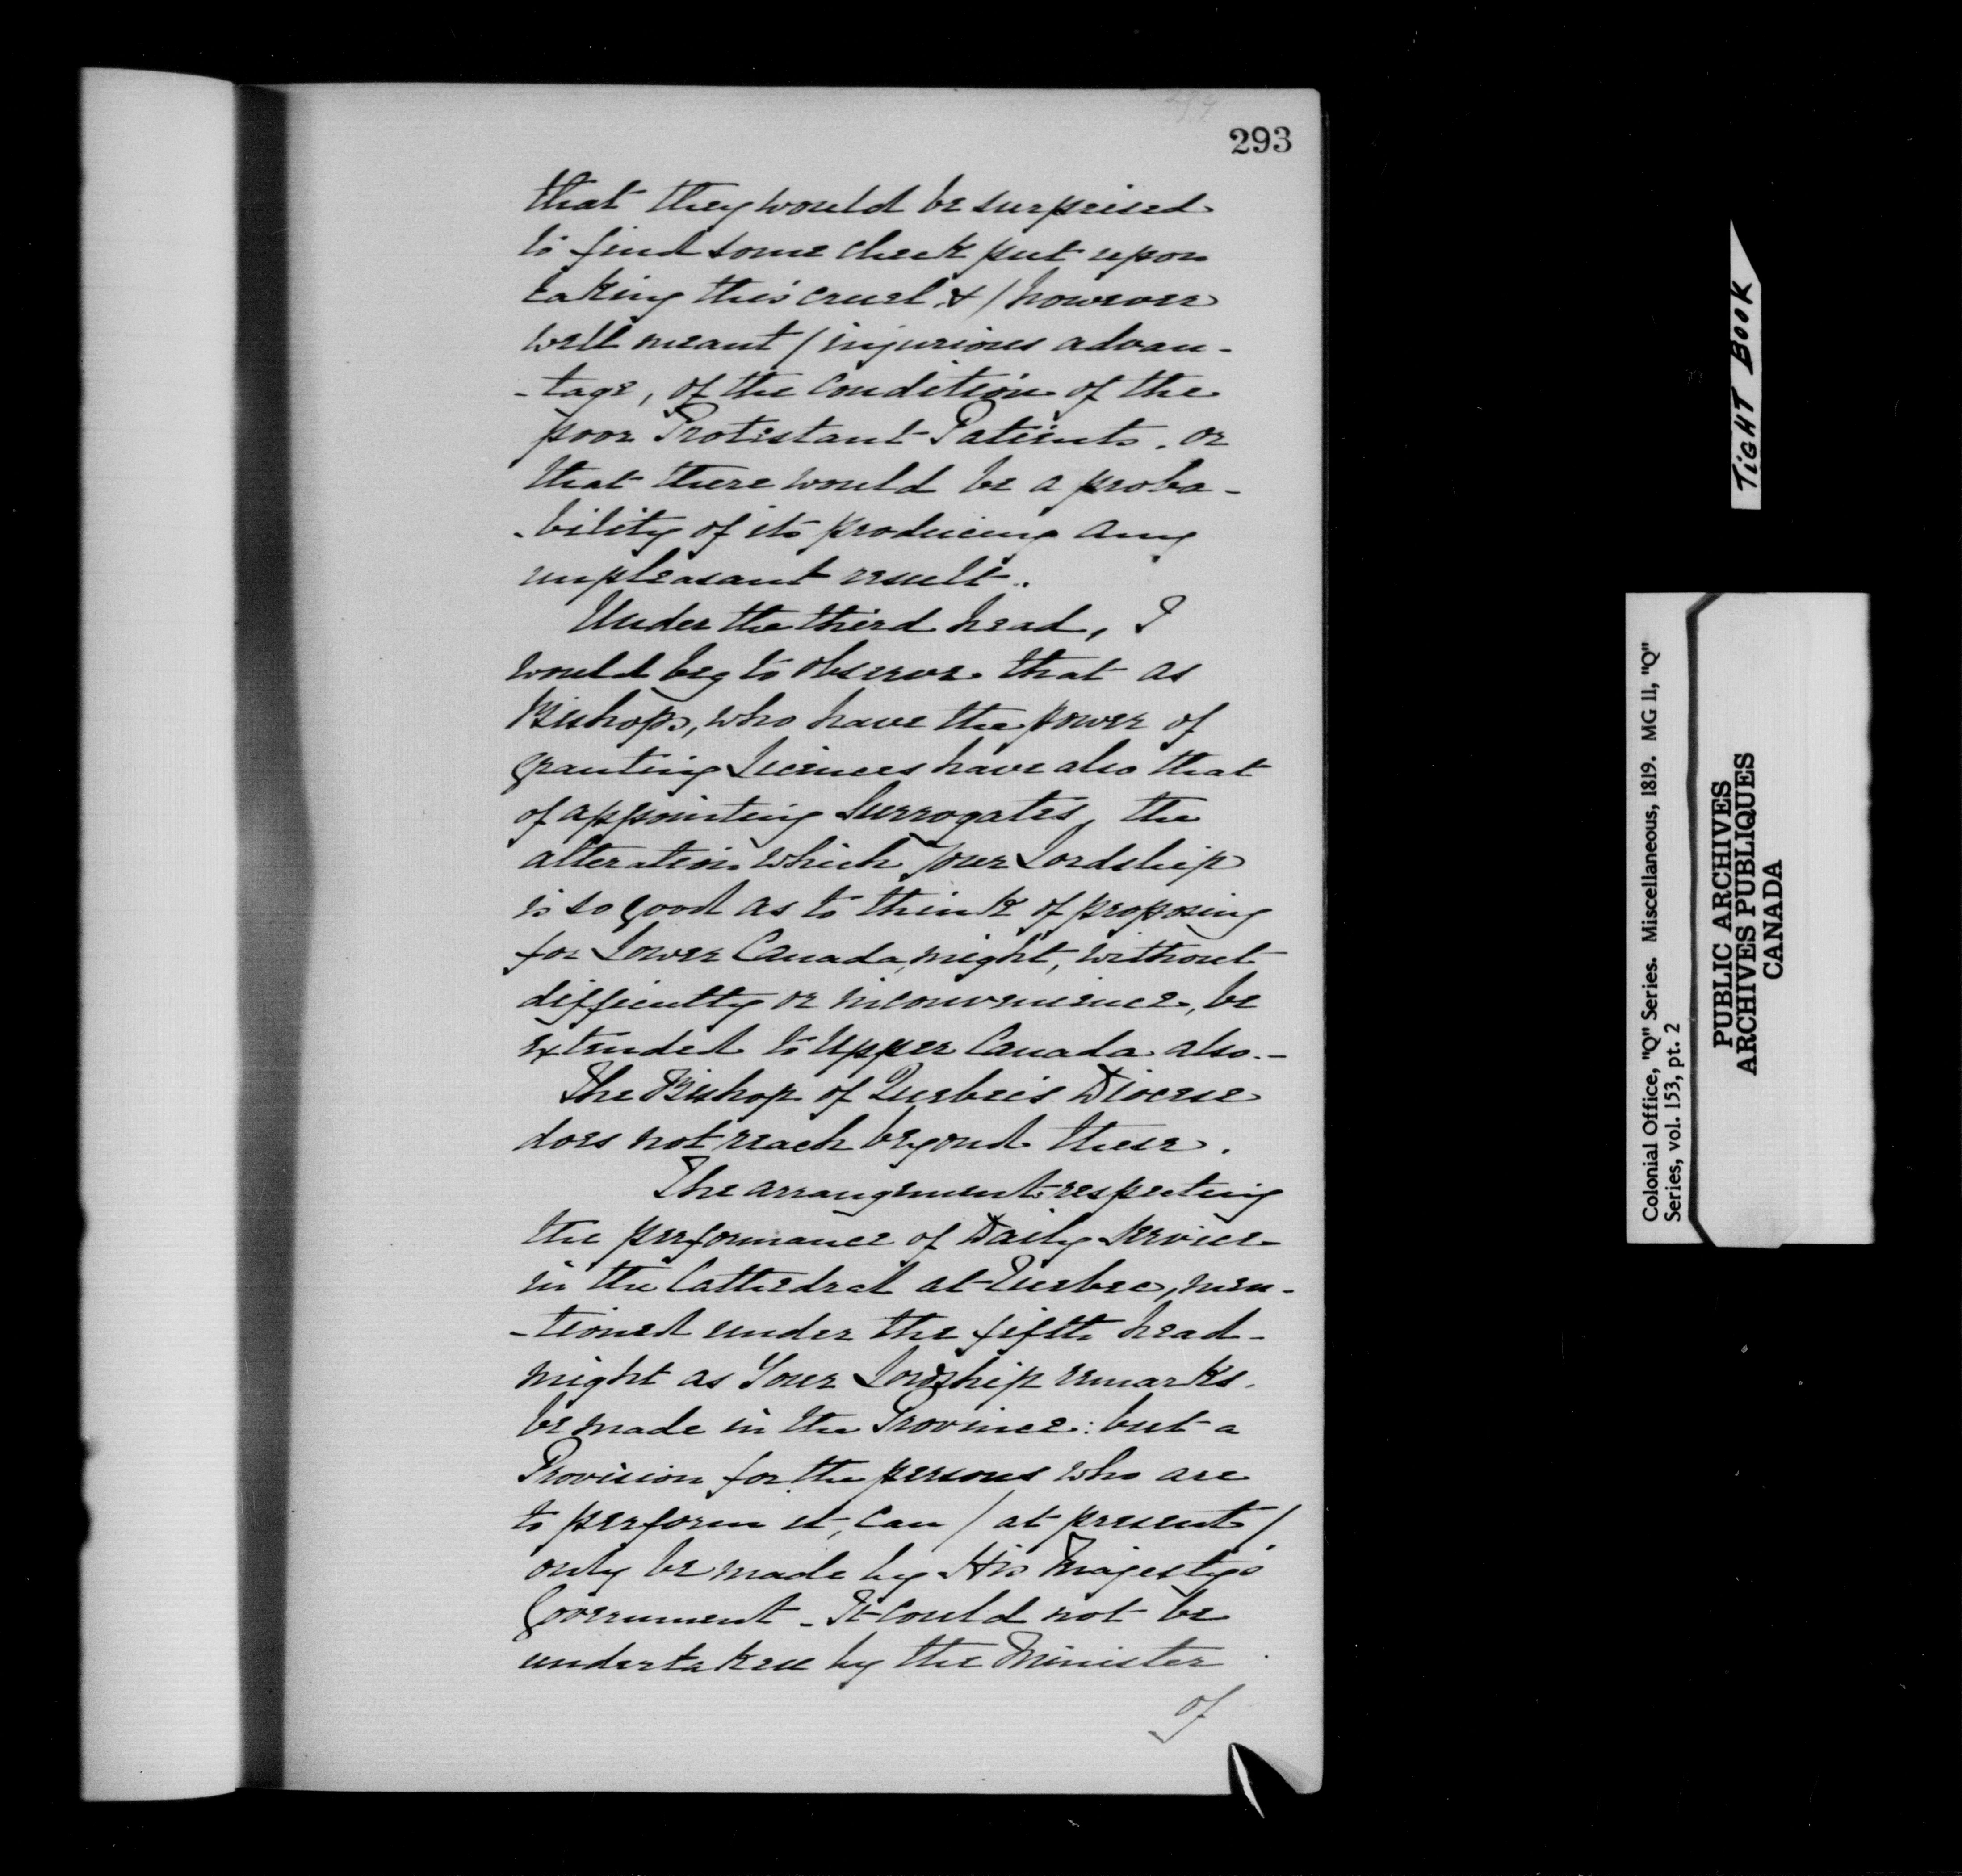 293
that they would be surprised
to find some check put upon
taking this cruel, & / however
well meant / injurious advan-
-tage, of the condition of the
poor Protestant Patients. or
that there would be a proba-
-bility of its producing any
unpleasant result.
Under the third head, I
would beg to observe that as
Bishops, who have the power of
granting Licences have also that
of appointing Surrogates, the
alteration which your Lordship
is so good as to think of proposing
for Lower Canada, might, without
difficulty or inconvenience, be
extended to Upper Canada also.-
The Bishop of Quebec's Diocese
does not reach beyond these.
The arrangement respecting
the performance of Daily Service
in the Cathedral at Quebec, men-
-tioned under the fifth head-
might as Your Lordship remarks.
be made in the Province: but a
Provision for the persons who are
to perform it, can / at present /
only be made by His Majesty's
Government - It could not be
undertaken by the Minister
of
TIGHT BOOK
Colonial Office, "Q" Series. Miscellaneous, 1819. MG 11, "Q"
Series, vol. 153, pt. 2
PUBLIC ARCHIVES
ARCHIVES PUBLIQUES
CANADA